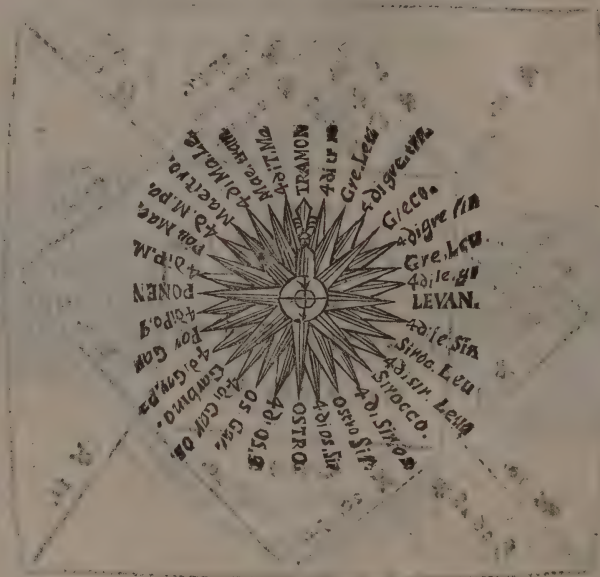 TRAMON
4 di tr
Gre.Leu
4 di gre.
Greco.
4 di gre
Gre.Leu.
4 di le.gr
LEVAN.
4 di le.Sin
Siroc.Leu
4 di sir. Leua
Sirocco.
4 di Siri.
Ostro Sir.
4 di os.Si
OSTRO
4 di os.g
os Gar.
4 di Gar os
Garbino.
4 di Gar.po
Pon Gar
4 di Po.g
PONEN
4 di P.M.
Pon Mae.
4 di M.po.
Maestro.
4 di Ma.Le.
Mae.tram
4 di T.Ma